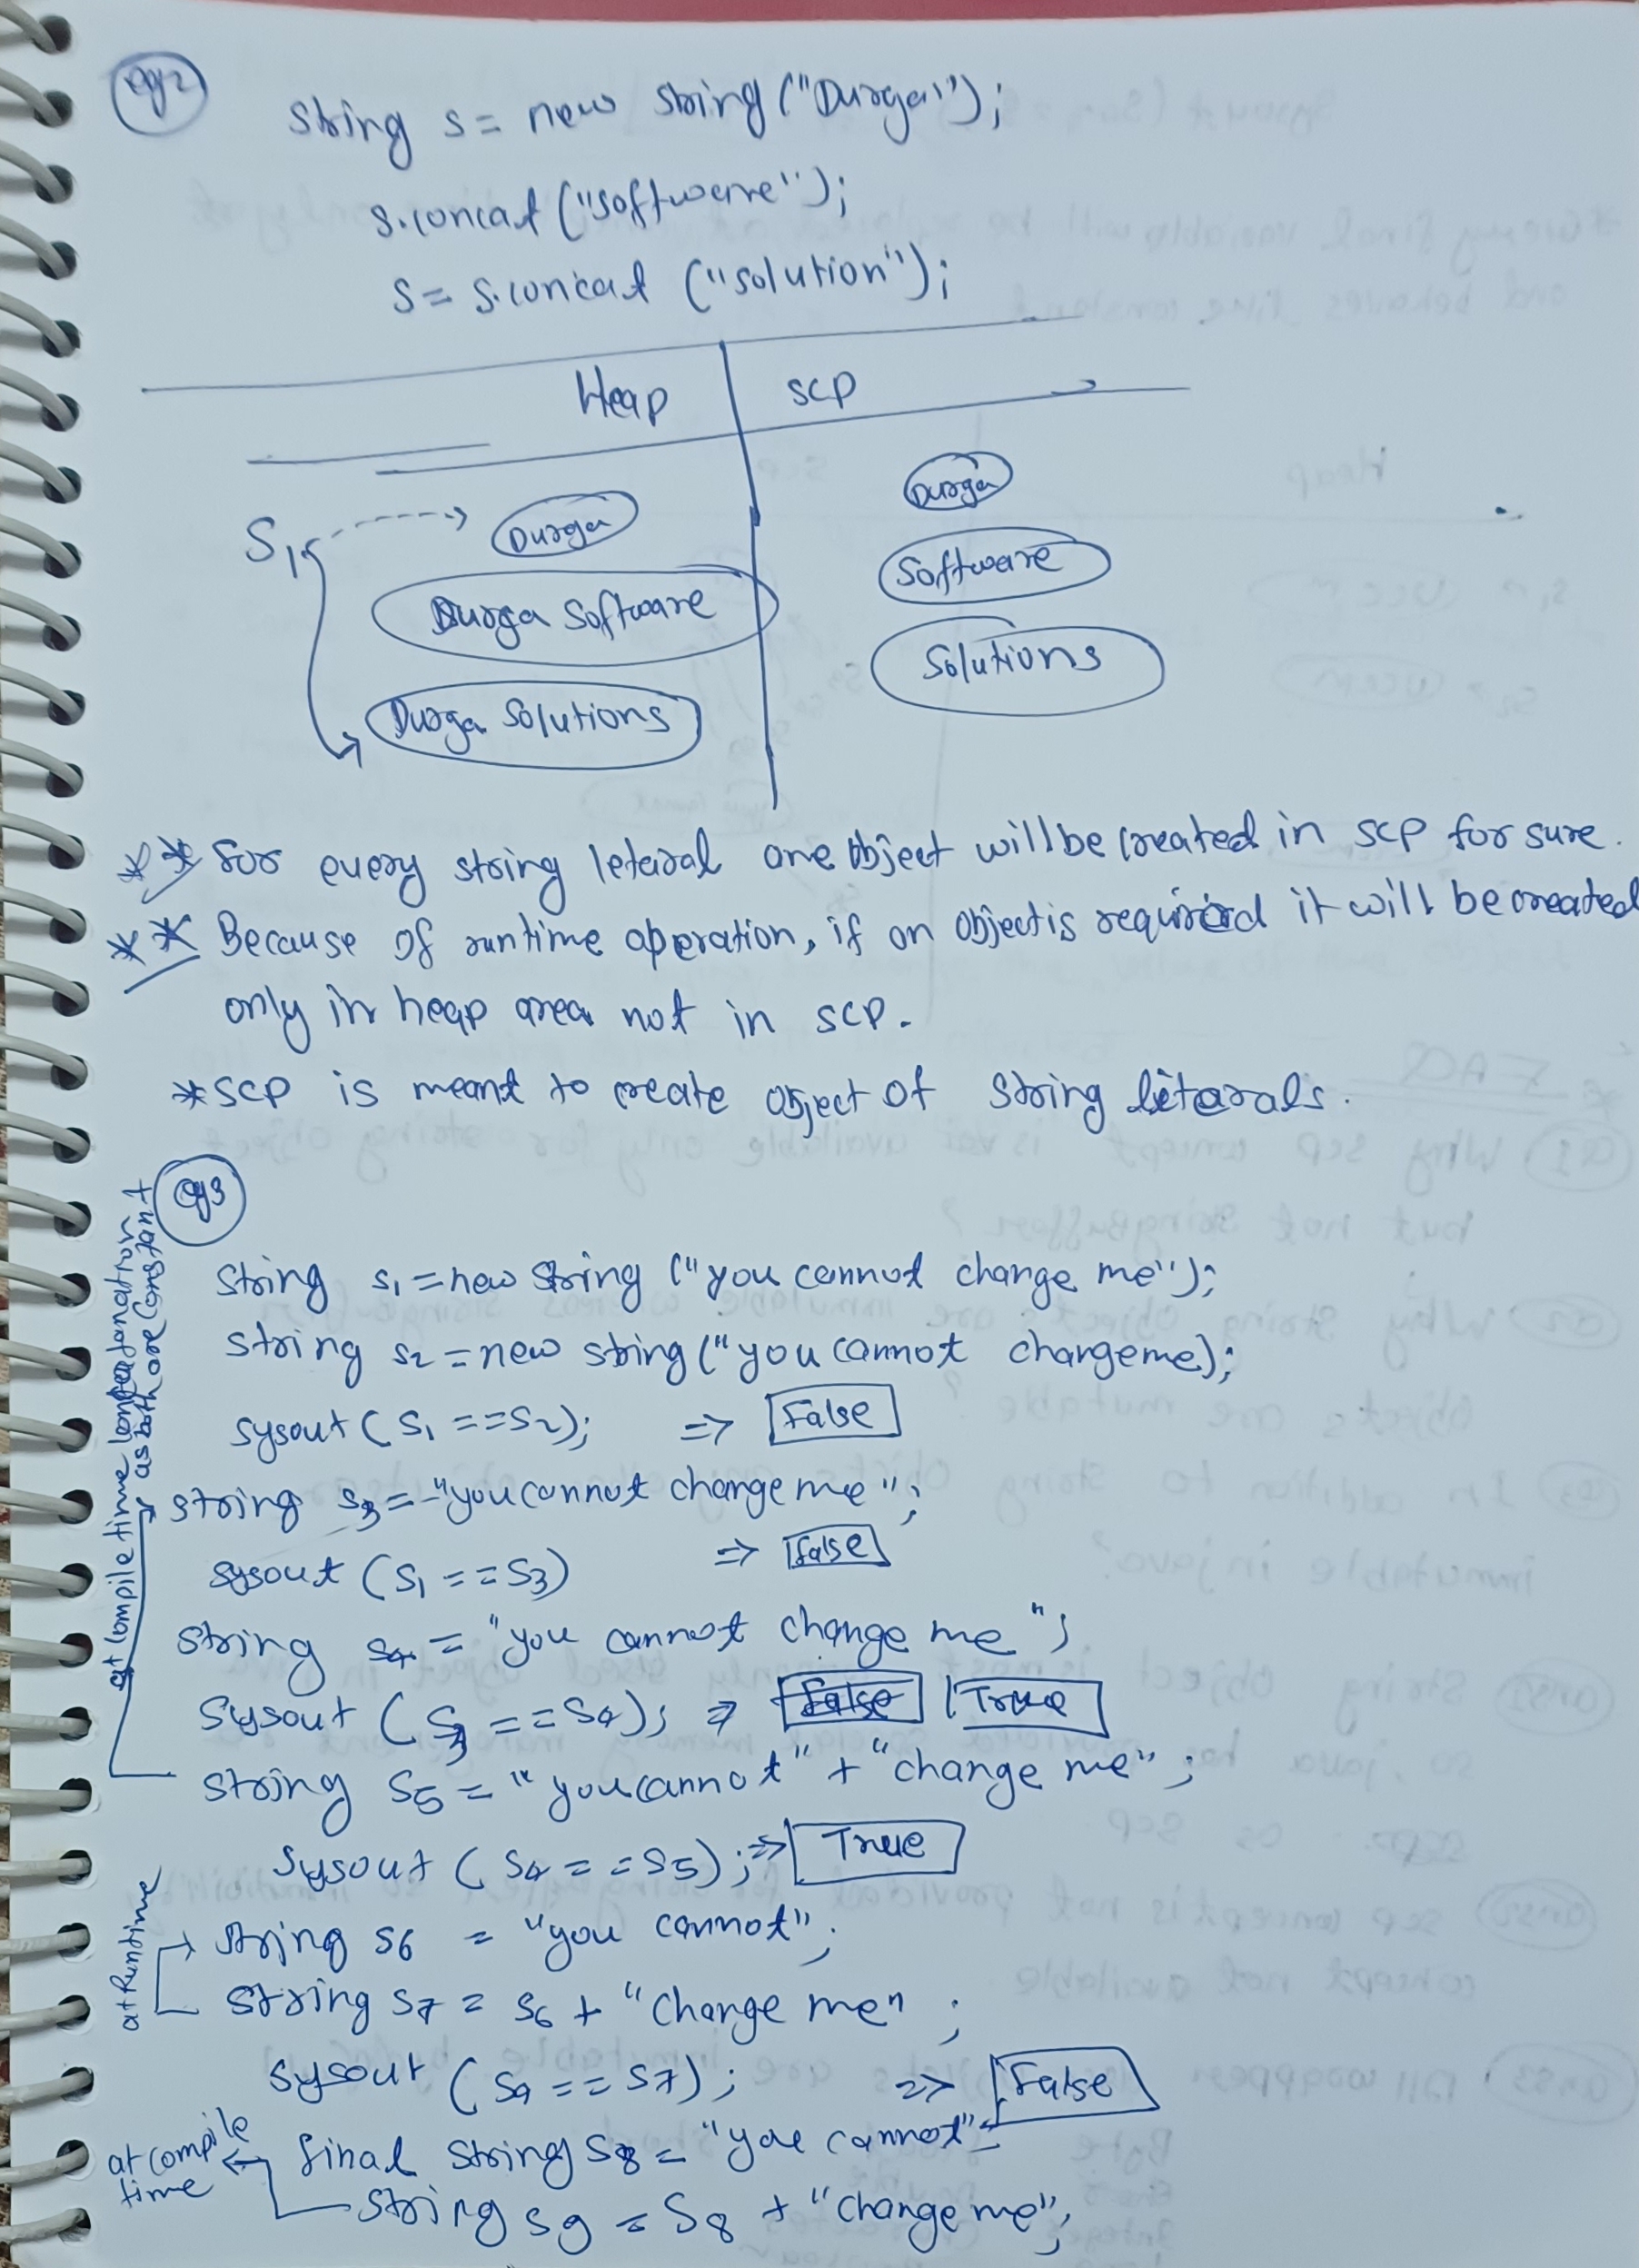 eg2
String s = new String ("Durga");
s.concat ("software");
s = s.concat ("solution");
Heap | SCP
S1 Durga
Durga Software
Durga Solutions
Durga
Software
Solutions
** for every string leteral one object will be created in scp for sure.
** Because of runtime operation, if an object is required it will be created
only in heap area not in scp.
* SCP is meant to create object of string literals.
eg3
at compile time
as both are constant
String s1 = new String ("you cannot change me");
String s2 = new string ("you cannot change me);
sysout ( S1 == S2); => False
string s3 = "you cannot change me";
sysout (S1 == S3) => False
string s4 = "you cannot change me";
Sysout ( S3 == S4); => False | True
string S5 = "you cannot" + "change me";
sysout ( S4 == S5); => True
at Runtime
string s6 = "you cannot";
string s7 = s6 + "change me";
sysout ( S4 == S7); => False
at compile
time
final string S8 = "you cannot"
string s9 = S8 + "change me";